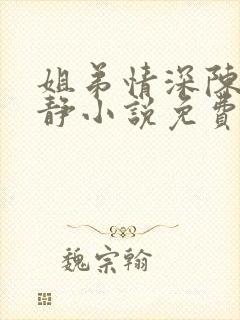 姐弟情深陳
靜小說免費
魏宗翰